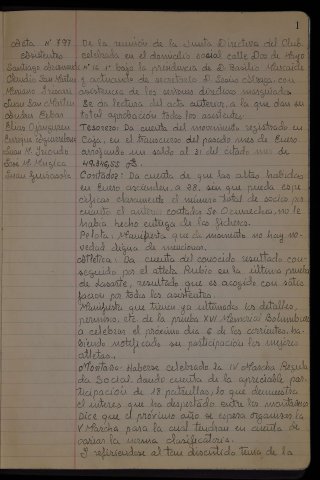 1
Acta Nº 797
De la reunión de la Junta Directiva del Club,
Asistentes
celebrada en el domicilio social calle Dos de Mayo
Nº 16 1º bajo la presidencia de D. Basilio
Claudio San Martín
y actuando de secretario D. Jesús
Mariano
asistencia de los señores directivos
Juan San Martín
Se da lectura del acta anterior, a la que dan su
total aprobación todos los asistentes.
Elías
Tesorero: Da cuenta del movimiento registrado en
Enrique
Caja, en el transcurso del pasado mes de Enero
Juan M.
arrojando un saldo al 31 del citado mes de
José M. Mugica
Contador: Da cuenta de que las altas habidas
en Enero ascienden a 38, sin que pueda espe-
cificar claramente el número total de socios por
cuanto el anterior contador Sr. no le
había hecho entrega de los ficheros.
Pelota: Manifiesta que de momento no hay no-
vedad digna de mencionar.
Atlética: Da cuenta del conocido resultado con-
seguido por el atleta Rubio en la última prueba
de Lasarte, resultado que es acogido con satis-
facción por todos los asistentes.
Manifiesta que tienen ya ultimados los detalles,
permisos, etc. de la prueba XVI Memorial
a celebrar el próximo día 6 de los corrientes, ha-
biendo notificado su participación los mejores
atletas.
Montaña: Haberse celebrado la IV Marcha Regula-
da Social, dando cuenta de la apreciable par-
ticipación de 18 patrullas, lo que demuestra
el interés que ha despertado entre los montañeros
Dice que el próximo año se espera organizar la
V Marcha para la cual tendrán en cuenta de
variar la norma clasificatoria.
Y refiriéndose al tan discutido tema de la